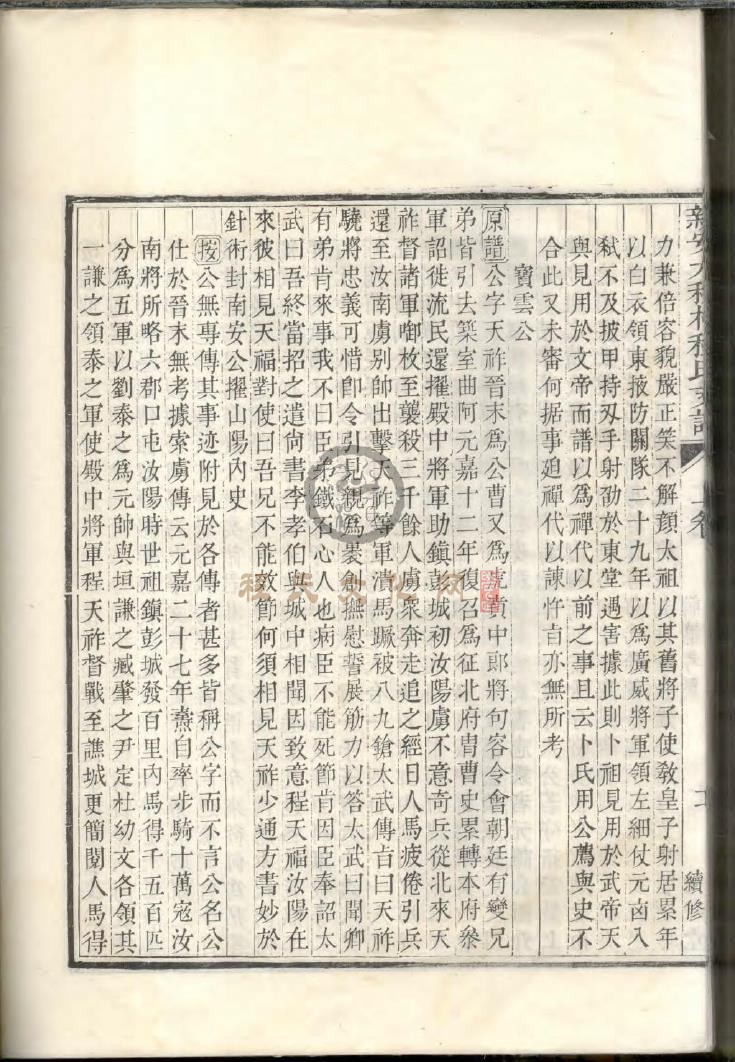 力兼倍容貌嚴正笑不解顏太祖以其舊將子使敎皇子射居累年
以白衣領東掖防關隊二十九年以爲廣威將軍領左細仗元凶入
弑不及披甲持刄手射劭於東堂遇害據此則卜祖見用於武帝天
與見用於文帝而譜以爲禪代以前之事且云卜氏用公薦與史不
合此又未審何据事廹禪代以諫忤㫖亦無所考
寶雲公
原譜公字天祚晉末爲公曹又爲虎賁中郎將句容令會朝廷有變兄
弟皆引去築室曲阿元嘉十二年復召爲征北府胄曹史累轉本府叅
軍詔徙流民還擢殿中將軍助鎭彭城初汝陽虜不意奇兵從北來天
祚督諸軍啣枚至襲殺三千餘人虜衆奔走追之經日人馬疲倦引兵
還至汝南虜别帥出擊天祚等軍潰馬蹶被八九鎗太武傳㫖曰天祚
驍將忠義可惜卽令引見親爲裹創撫慰誓展筋力以答太武曰聞卿
有弟肯來事我不曰臣弟鐵石心人也病臣不能死節肯因臣奉詔太
武曰吾終當招之遣尚書李孝伯與城中相聞因致意程天福汝陽在
來彼相見天福對使曰吾兄不能效節何須相見天祚少通方書妙於
針術封南安公擢山陽內史
按公無專傳其事迹附見於各傳者甚多皆稱公字而不言公名公
仕於晉末無考據索虜傳云元嘉二十七年燾自率步騎十萬寇汝
南將所略六郡口屯汝陽時世祖鎭彭城發百里內馬得千五百匹
分爲五軍以劉泰之爲元帥與垣謙之臧肇之尹定杜幼文各領其
一謙之領泰之軍使殿中將軍程天祚督戰至譙城更簡閱人馬得
續修
程氏文化网